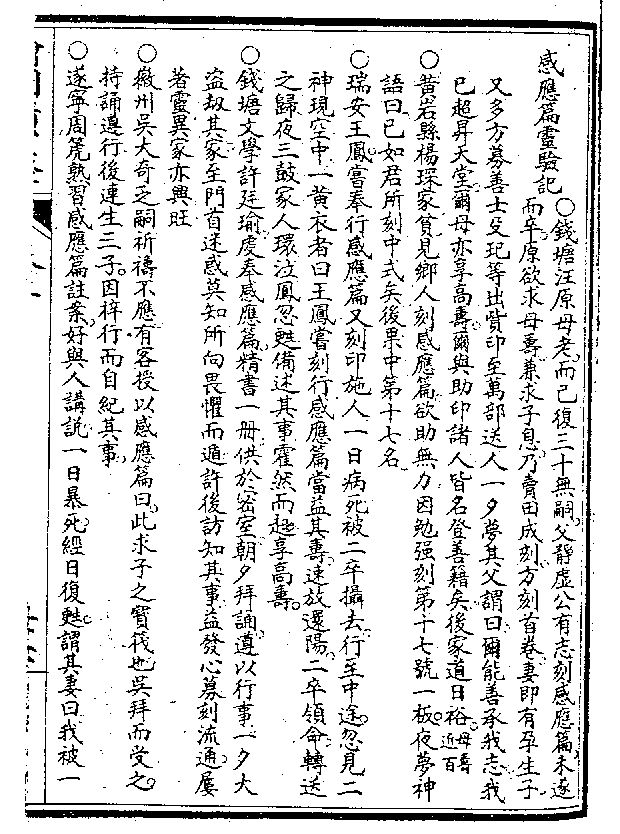 感應篇靈驗記 ○錢塘汪原母老而己復三十無嗣父靜虛公有志刻感應篇未遂
而卒原欲求母壽兼求子息乃賣田成刻方刻首卷妻即有孕生子
又多方募善士殳玘等出貲印至萬部送人一夕夢其父謂曰爾能善承我志我
已超昇天堂爾母亦享高壽爾與助印諸人皆名登善籍矣後家道日裕母壽近百
○黃岩縣楊琛家貧見鄉人刻感應篇欲助無力因勉强刻第十七號一板夜夢神
語曰已如君所刻中式矣後果中第十七名
○瑞安王鳳嘗奉行感應篇又刻印施人一日病死被二卒攝去行至中途忽見二
神現空中一黃衣者曰王鳳嘗刻行感應篇當益其壽速放還陽二卒領命轉送
之歸夜三鼓家人環泣鳳忽甦備述其事霍然而起享高壽
○錢塘文學許廷瑜虔奉感應篇精書一册供於密室朝夕拜誦遵以行事一夕大
盜劫其家至門首迷惑莫知所向畏懼而遁許後訪知其事益發心募刻流通屢
著靈異家亦興旺
○徽州吳大奇乏嗣祈禱不應有客授以感應篇曰此求子之寶筏也吳拜而受之
持誦遵行後連生三子因梓行而自紀其事
○遂寧周篪熟習感應篇註案好與人講說一日暴死經日復甦謂其妻曰我被一